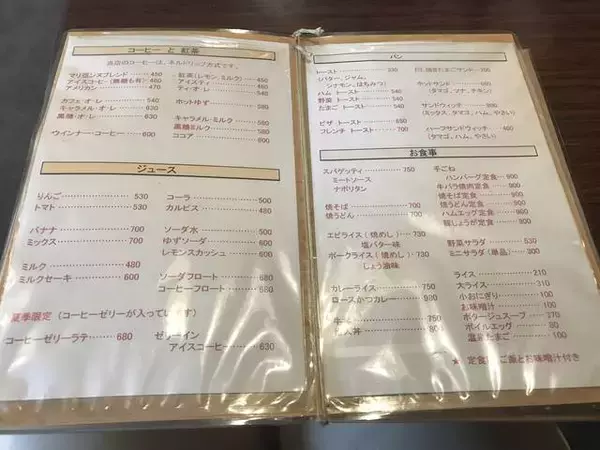 コーヒー と 紅茶
当店のコーヒーは、ネルドリップ方式です。
マリオンズブレンド 450
アイスコーヒー(無糖も有) 460
アメリカン 470
カフェ・オ・レ 540
キャラメル・オ・レ 630
黒糖・オ・レ 630
ウインナー・コーヒー 600
紅茶(レモン、ミルク) 450
アイスティー 460
ティ・オ・レ 540
ホットゆず 580
キャラメル・ミルク 580
黒糖ミルク 580
ココア 600
ジュース
りんご 530
トマト 530
バナナ 700
ミックス 700
ミルク 480
ミルクセーキ 630
コーラ 500
カルピス 480
ソーダ水 500
ゆずソーダ 600
レモンスカッシュ 600
ソーダフロート 680
コーヒーフロート 680
夏季限定 (コーヒーゼリーが入っています)
コーヒーゼリーラテ 680
ゼリーイン
アイスコーヒー 630
パン
トースト 330
(バター、ジャム、
シナモン、はちみつ)
ハム トースト 540
野菜 トースト 540
たまご トースト 540
ピザ トースト 600
フレンチ トースト 700
焼たまごサンド 700
ホットサンド 800
(タマゴ、ツナ、チキン)
サンドウィッチ 800
(ミックス、タマゴ、ハム、やさい)
ハーフサンドウィッチ 460
(タマゴ、ハム、やさい)
お食事
スパゲッティ 750
ミートソース
ナポリタン
焼そば 700
焼うどん 700
エビライス(焼めし) 750
塩バター味
ポークライス(焼めし) 750
しょう油味
カレーライス 750
ロースかつカレー 930
人丼
手ごね
ハンバーグ定食 900
牛バラ焼肉定食 900
焼そば定食 900
焼うどん定食 900
ハムエッグ定食 900
豚しょうが定食 900
野菜サラダ 530
ミニサラダ(単品) 300
ライス 210
大ライス 310
小おにぎり 100
お味噌汁 100
ポタージュスープ 370
ボイルエッグ 80
温泉たまご 100
★ 定食は、ご飯とお味噌汁付き